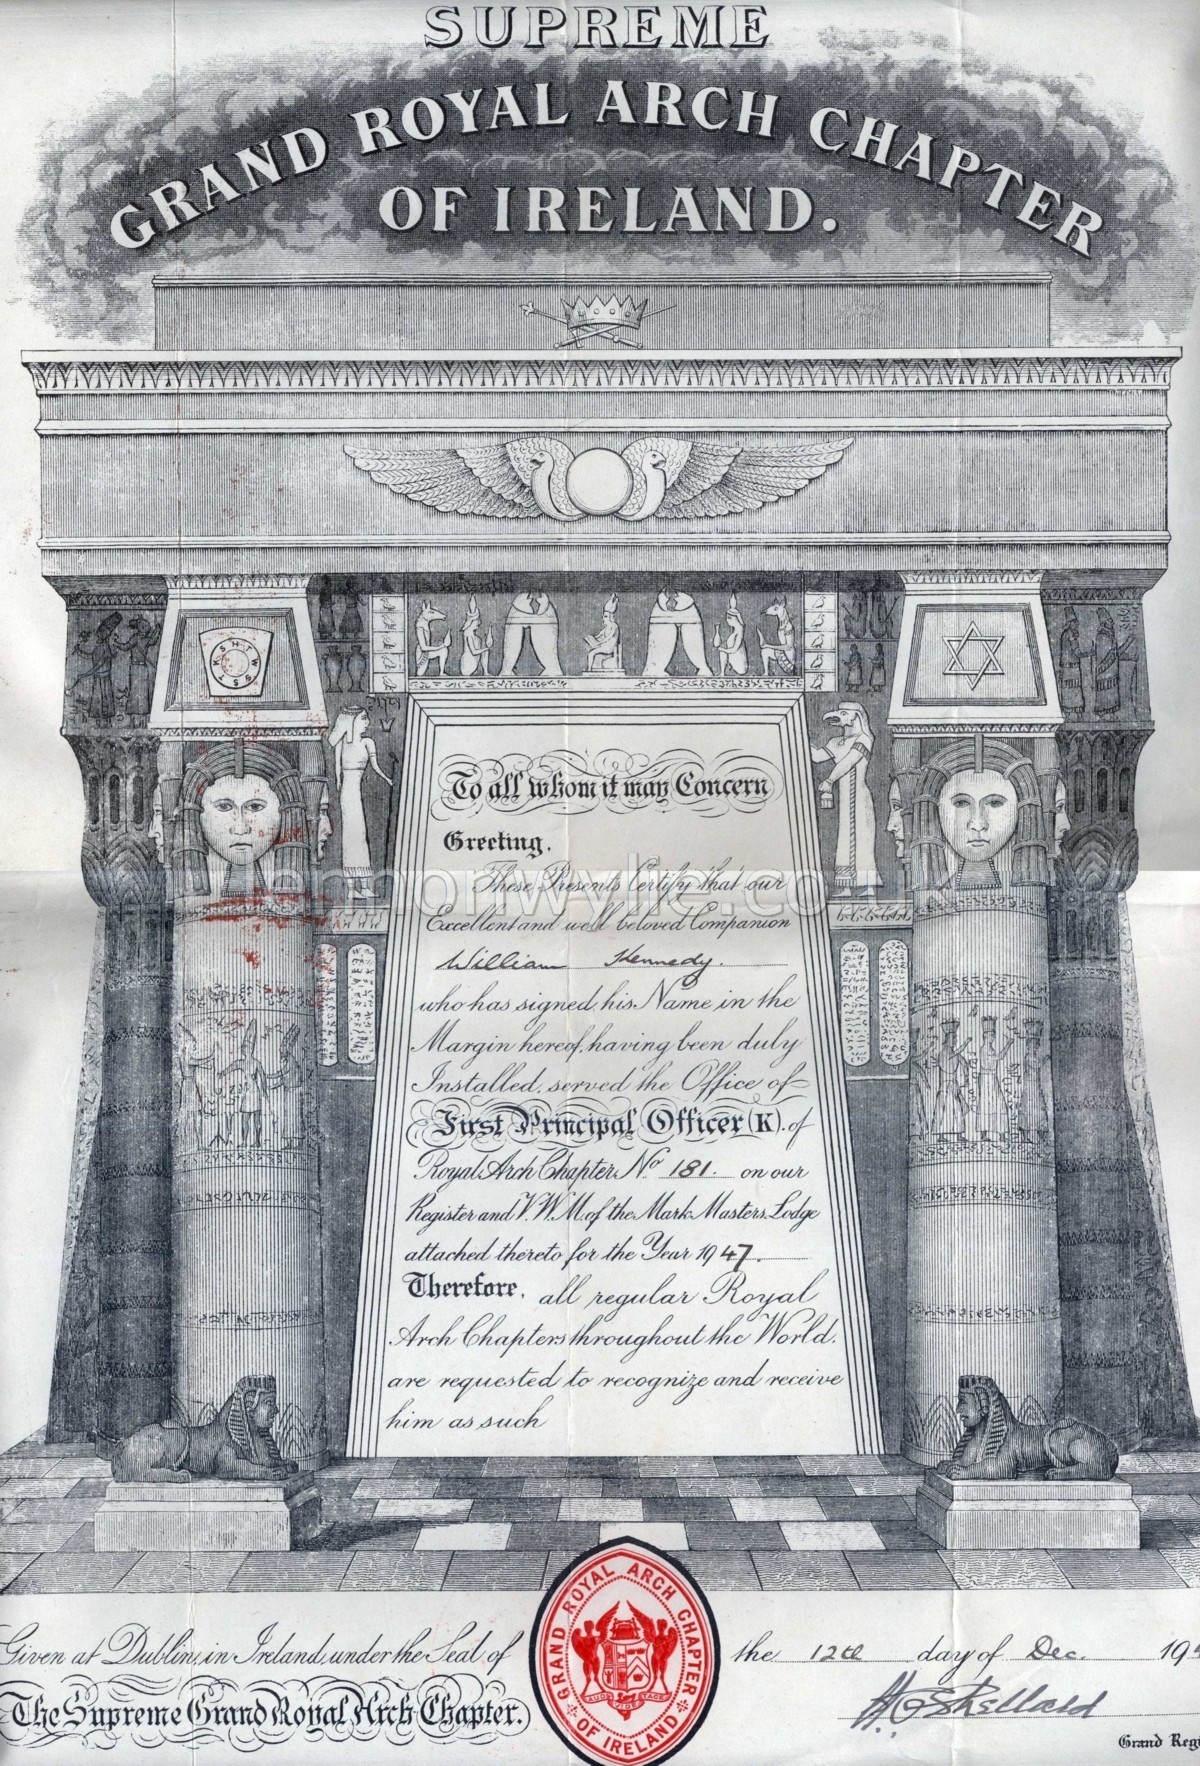 SUPREME
GRAND ROYAL ARCH CHAPTER
OF IRELAND.
H T W S S T K S
To all whom it may Concern
Greeting.
These Presents Certify that our
Excellent and well beloved Companion
William Kennedy.
who has signed his Name in the
Margin hereof, having been duly
Installed, served the Office of
First Principal Officer (K). of
Royal Arch Chapter No 181. on our
Register and V.W.M. of the Mark Masters Lodge
attached thereto for the Year 1947.
Therefore, all regular Royal
Arch Chapters throughout the World.
are requested to recognize and receive
him as such
Given at Dublin, in Ireland, under the Seal of
The Supreme Grand Royal Arch Chapter.
GRAND ROYAL ARCH CHAPTER
OF IRELAND
AUDI VIDE TACE
the 12th day of Dec. 19
Grand Regi